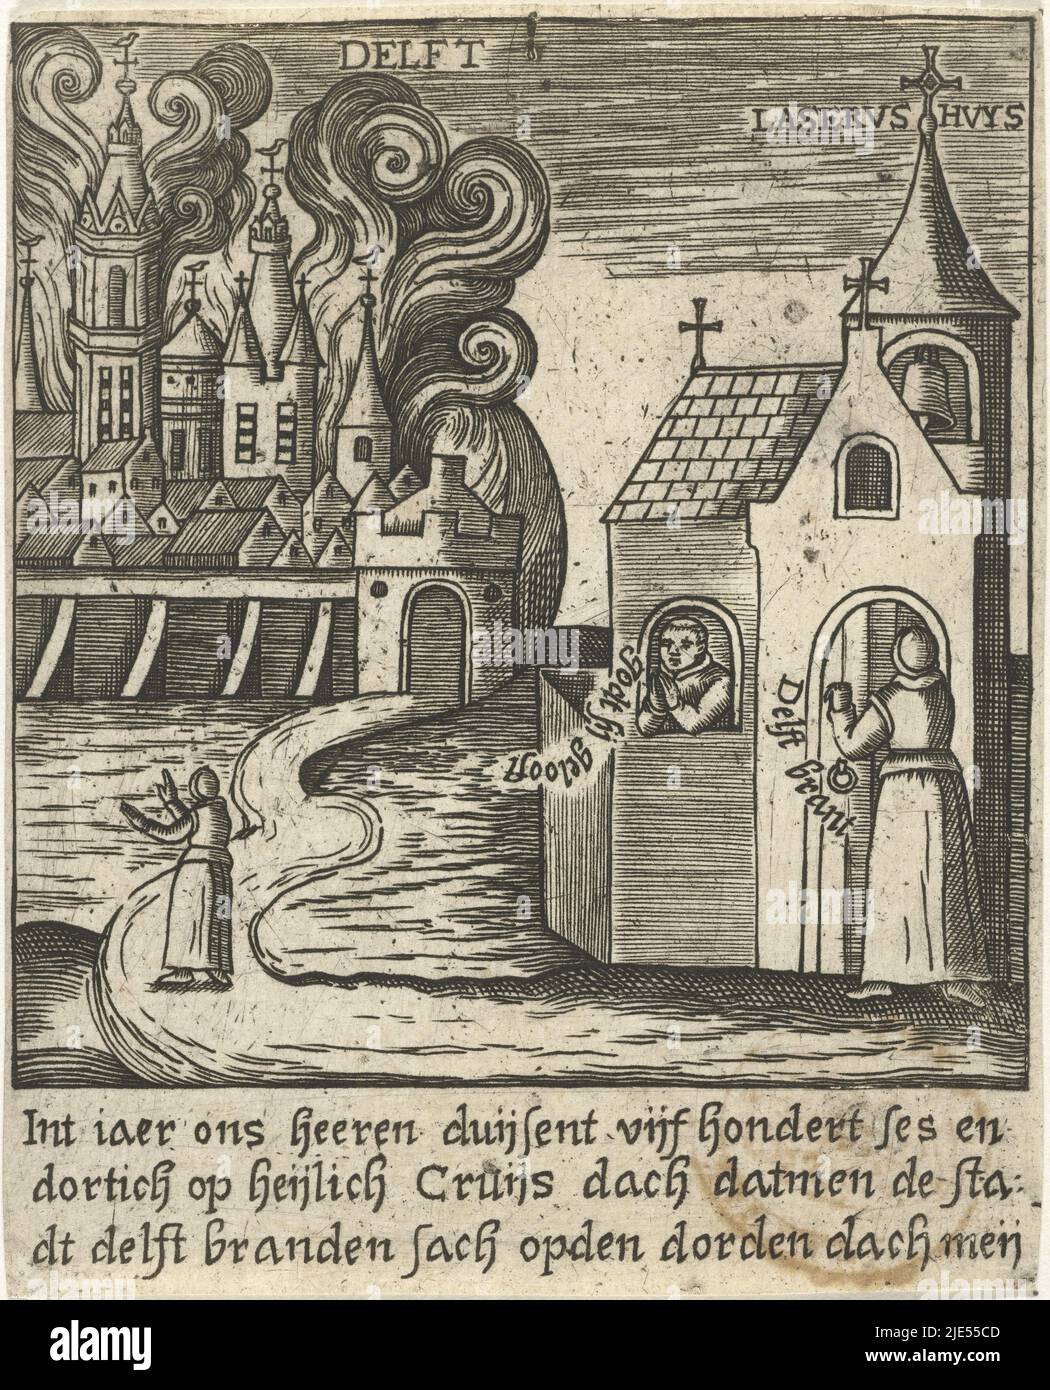 DELFT
LASERVS HVYS
godt sy gelooft
Delft
brant
Int iaer ons heeren duijsent vijf hondert ses en
dortich op heijlich Cruijs dach datmen de sta:
dt delft branden sach opden dorden dach meij
alamy
Image ID: 2JE55CD
www.alamy.com